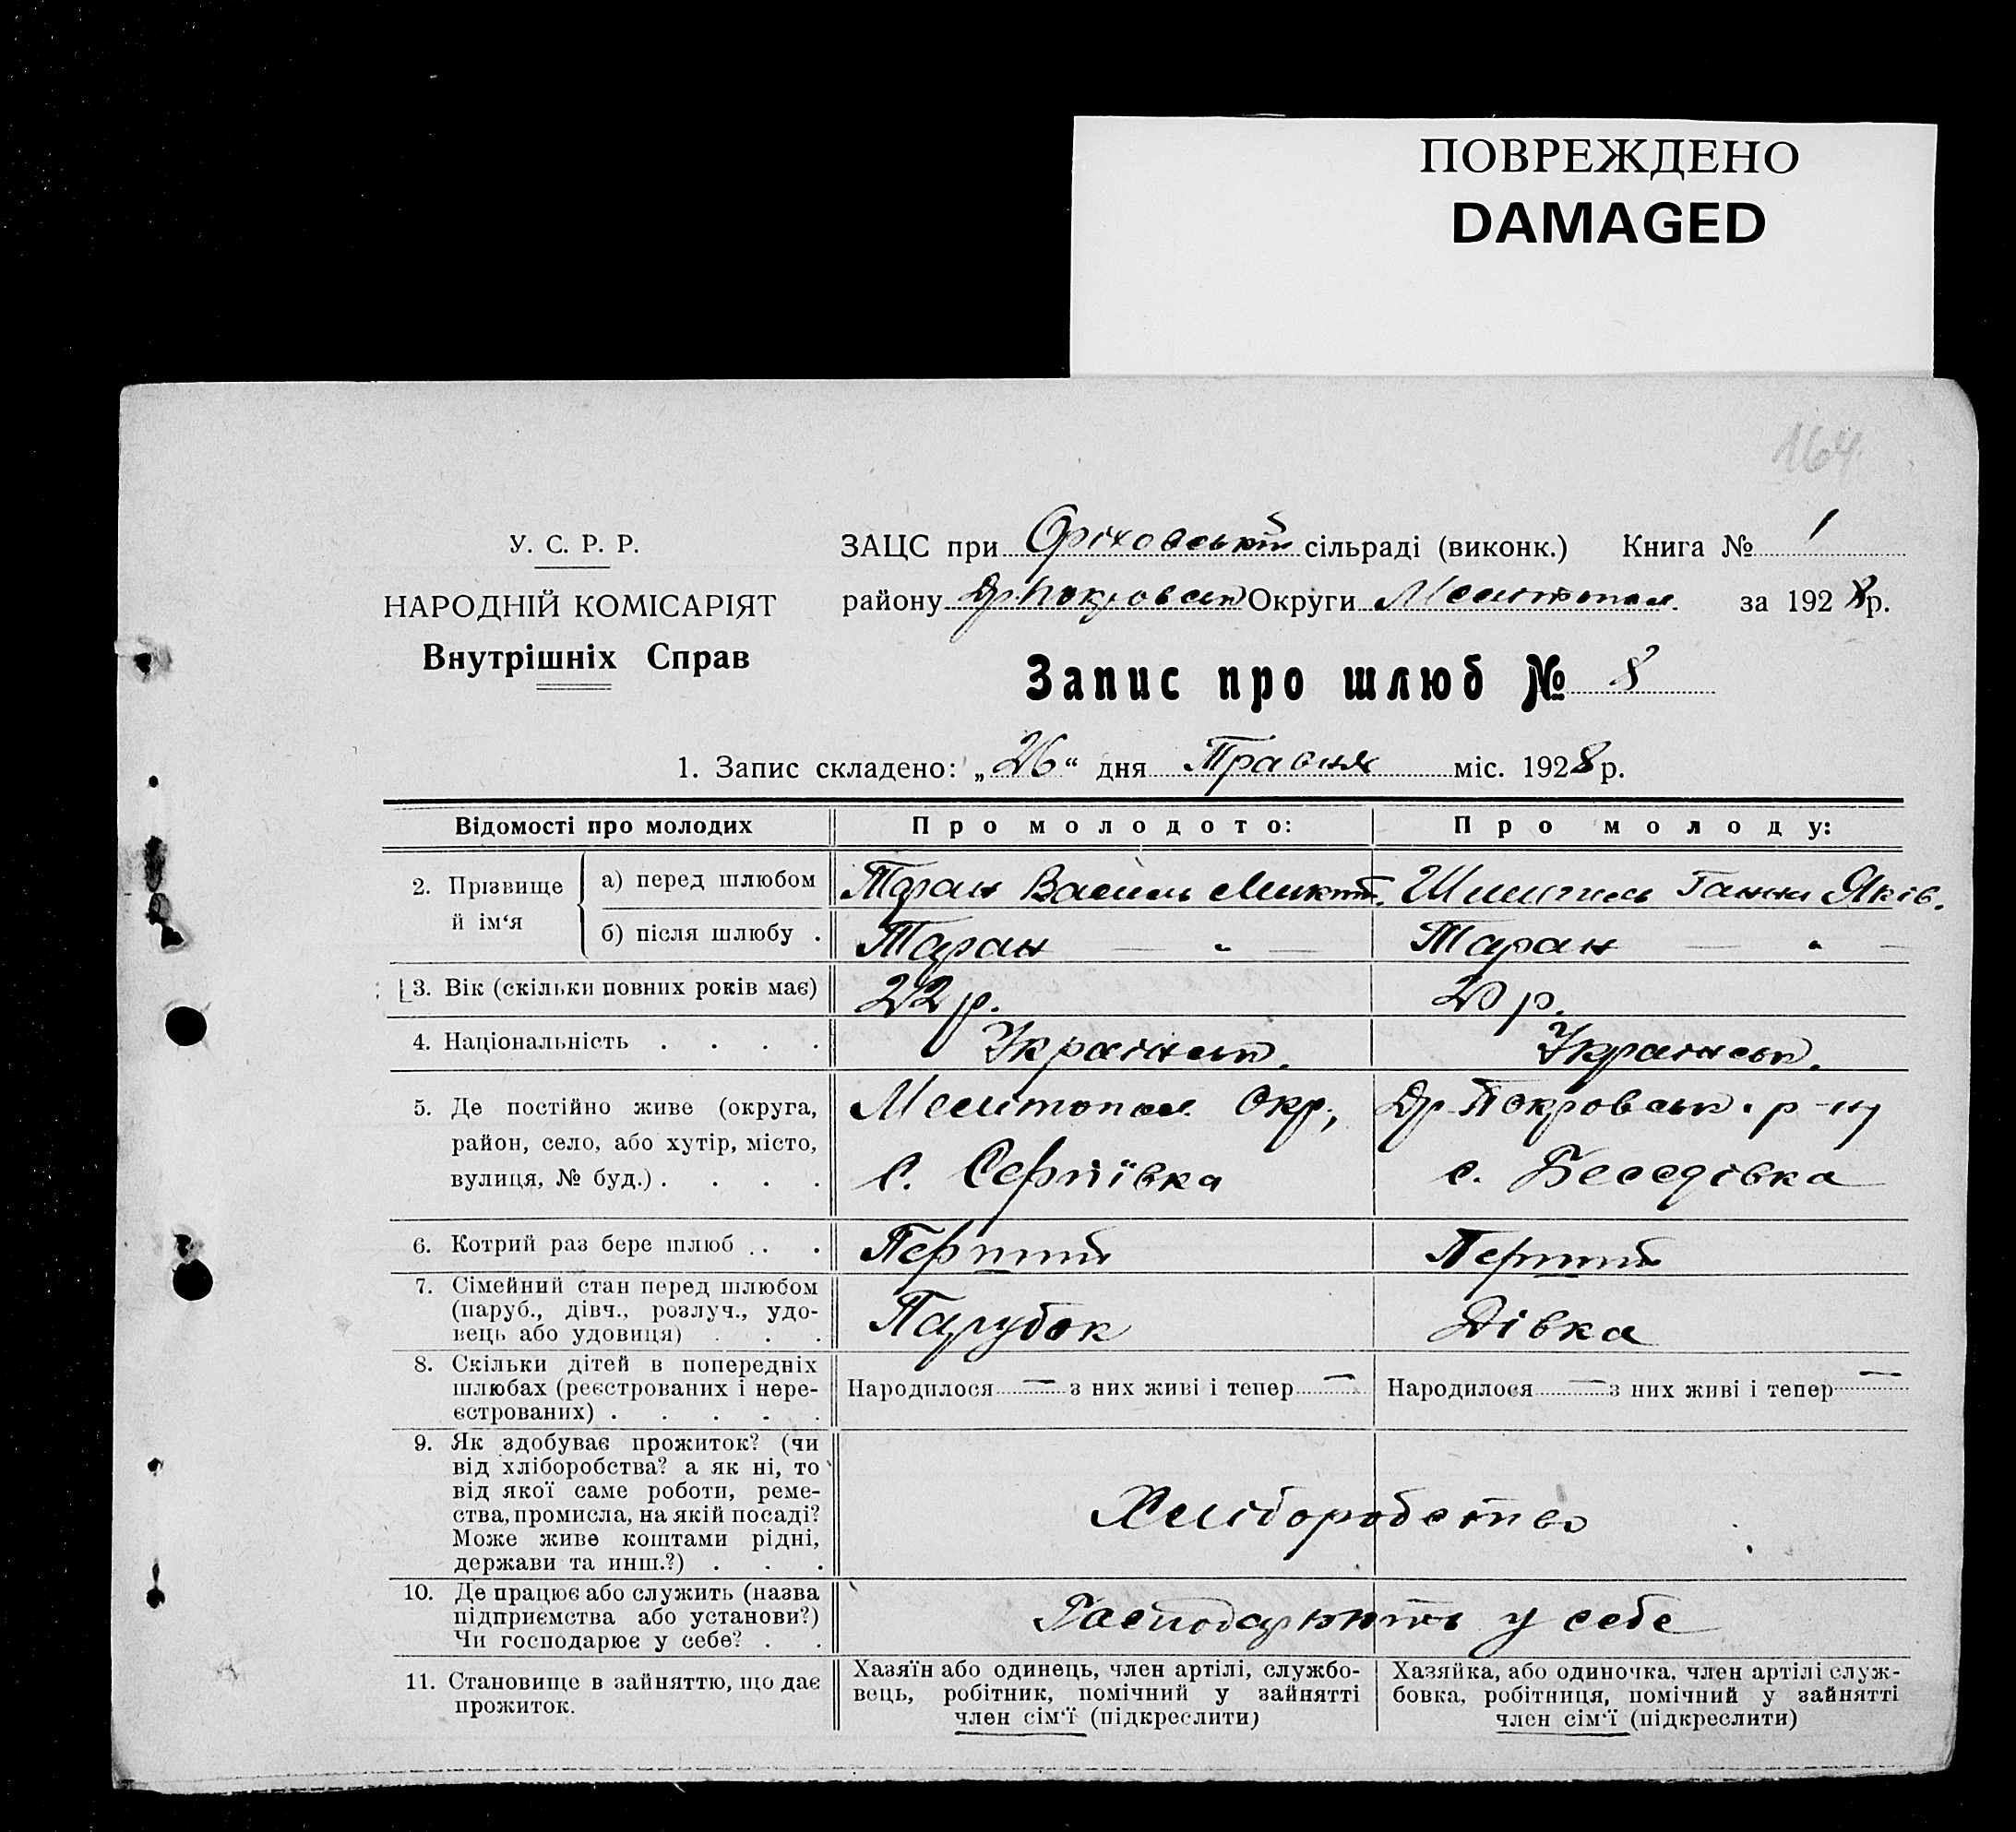 ПОВРЕЖДЕНО
DAMAGED
164
У. С. Р. Р.
НАРОДНІЙ КОМІСАРІЯТ
Внутрішніх Справ
ЗАЦС при Оріховській сільраді (виконк.) Книга № 1
району Др Покровськ Округи Мелитопол. за 1928 р.
Запис про шлюб № 8
1. Запис складено: „26“ дня Травня міс. 1928 р.
Відомості про молодих
Про молодого:
Про молоду:
2. Прізвище й ім‘я
а) перед шлюбом
Таран Василь Микит.
Ганни Яків.
б) після шлюбу .
Таран — „ —
Таран — „ —
3. Вік (скільки повних років має)
22 р.
20 р.
4. Національність . . . .
Українськ.
Українськ.
5. Де постійно живе (округа,
район, село, або хутір, місто,
вулиця, № буд.) . . . .
Мелитопол. Окр, Др-Покровськ. р-ну
с. Сергіївка
с. Беседівка
6. Котрий раз бере шлюб . . .
Перший
Перший
7. Сімейний стан перед шлюбом
(паруб., дівч., розлуч., удо-
вець або удовиця) . . .
Парубок
Дівка
8. Скільки дітей в попередніх
шлюбах (реєстрованих і нере-
єстрованих) . . . . .
Народилося — з них живі і тепер —
Народилося — з них живі і тепер —
9. Як здобуває прожиток? (чи
від хліборобства? а як ні, то
від якої саме роботи, реме-
ства, промисла, на якій посаді?
Може живе коштами рідні,
держави та инш.?) . . .
Хліборобство
10. Де працює або служить (назва
підприємства або установи?)
Чи господарює у себе? . .
Господарюють у себе
11. Становище в зайняттю, що дає
прожиток.
Хазяїн або одинець, член артілі, службо-
вець, робітник, помічний у зайнятті
член сім‘ї (підкреслити)
Хазяйка, або одиночка, член артілі служ-
бовка, робітниця, помічний у зайнятті
член сім‘ї (підкреслити)